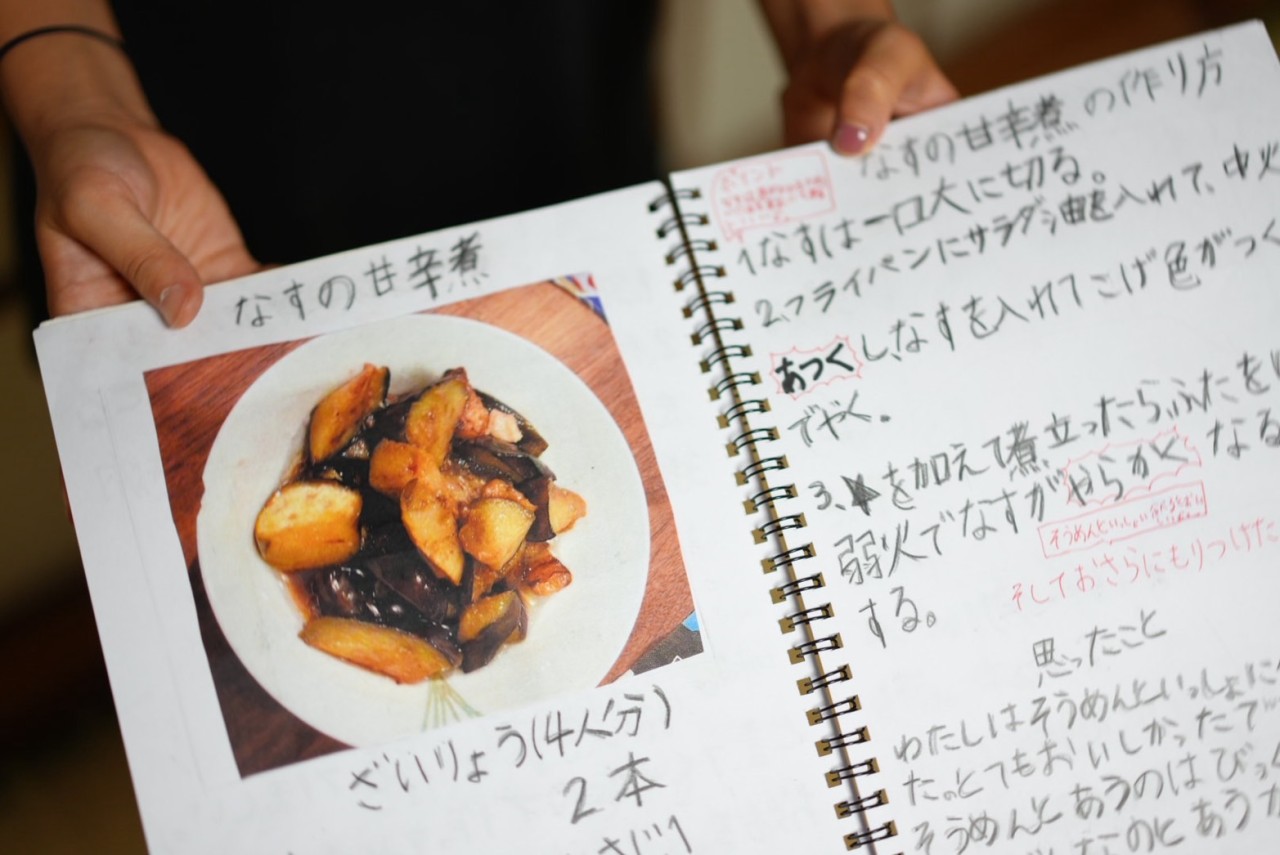 なすの甘辛煮
ざいりょう(4人分)
2本
さじ1
なすの甘辛煮の作り方
ポイント
1なすは一口大に切る。
2.フライパンにサラダ油を入れて、中火
あつくし、なすを入れてこげ色がつく
でやく。
3、を加えて煮立ったらふたをし
弱火でなすがやらかくなる
そうめんといっしょに
そしておさらにもりつけた
する。
思ったこと
わたしはそうめんといっしょに
た。とてもおいしかったで
そうめんとあうのはびっく
なのとあうか